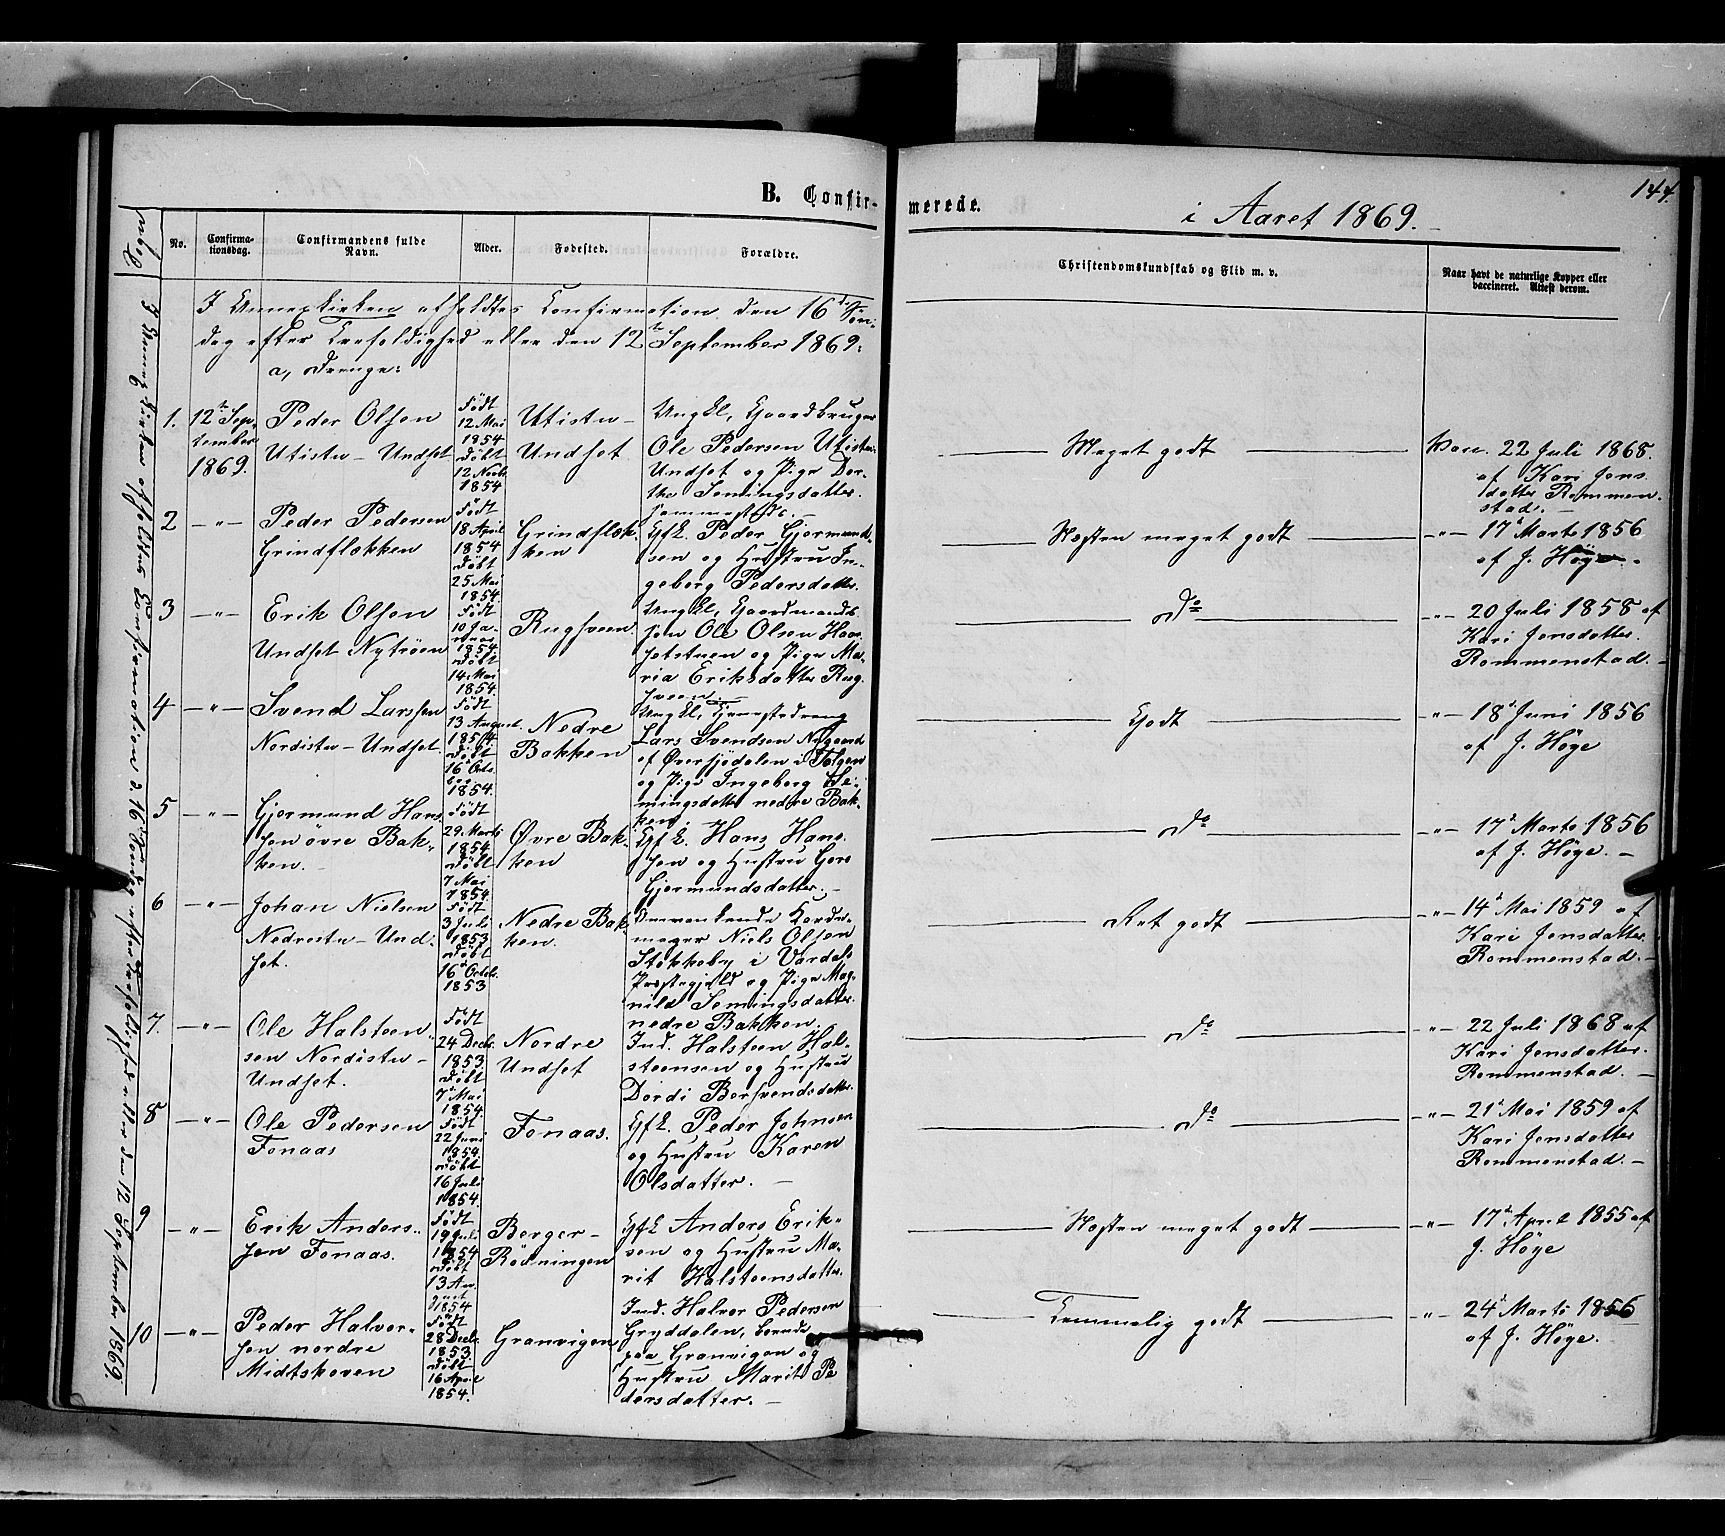 144.
B. Confir-
merede.
i Aaret 1869.
No.
Confirma-
tionsdag.
Confirmandens fulde
Navn.
Alder.
Fødested.
Forældre.
Christendomskundskab og Flid m. v.
Naar havt de naturlige Kopper eller
vaccineret. Attest derom.
I Annexkirken afholdtes Confirmation den 16de Søn-
dag efter Trefoldighed eller den 12te September 1869:
a, Drenge:
1.
12te Sep-
tember
1869.
Peder Olsen
Utistu-Undset
Født
12 Mai
1854
Døbt
12 Novbr
1854
Utistu-
Undset
Ungkl, Gaardbruger
Ole Pedersen Utistu-
Undset og Pige Dor-
the Semingsdatter
sammesteds. -
Meget godt
Vacc. 22 Juli 1868.
af Kari Jons
datter Rommen-
stad. -
2
- " -
Peder Pedersen
Grindflækken
Født
18 April
1854
Døbt
25 Mai
1854.
Grindflæk-
ken
Gfk. Peder Gjermund-
sen og Hustru In-
geborg Pedersdatter.
Næsten meget godt
- " - 17 Marts 1856
af J. Høye. -
3
- " -
Erik Olsen
Undset Nytrøen
Født
10 Ja-
nuar
1854.
Døbt
14 Mai
1854.
Rugsveen.
Ungkl, Gaardmands
søn Ole Olsen Haar
setstuen og Pige Ma-
ria Eriksdatter Rug
sveen. -
Do
- " - 20 Juli 1858 af
Kari Jonsdatter
Rommenstad. -
4
- " -
Svend Larssen
Nordistu-Undset.
Født
13 August
1854
Døbt
16 Octo
ber
1854.
Nedre
Bakken
Ungkl, Tjenestedreng
Lars Svendsen Nygaard
af Øversjødalen i Tolgen
og Pige Ingeborg Se-
mingsdatter nedre Bak-
ken.
Godt
- " - 18 Juni 1856
af J. Høye
5
- " -
Gjermund Hans
sen øvre Bak-
ken. -
Født
29. Marts
1854
Døbt
7 Mai
1854.
Øvre Bak-
ken
Gfk. Hans Hans-
sen og Hustru Goro
Gjermundsdatter. -
Do
- " - 17 Marts 1856
af J. Høye. -
6
- " -
Johan Nielsen
Nedrestu-Und-
set.
Født
3 Juli
1853
Døbt
16 Octob.
1853
Nedre Bak-
ken.
Niels Olsen
Stokkeby i Vardals
Præstegjeld og Pige Mag-
nild Semingsdatter
nedre Bakken.
Ret godt
- " - 14 Mai 1859 af
Kari Jonsdatter
Rommenstad. -
7.
- " -
Ole Halsteen-
sen Nordistu-
Undset.
Født
24 Decbr.
1853.
Døbt
7 Mai
1854.
Nordre
Undset
Ind. Halsteen Hal-
steensen og Hustru
Dordi Borsvendsdatter.
Do
- " - 22 Juli 1868 af
Kari Jonsdatter
Rommenstad. -
8
- " -
Ole Pedersen
Fonaas
Født
22 Juni
1854.
Døbt
16 Juli
1854.
Fonaas.
Gfk. Peder Johnsen
og Hustru Karen
Olsdatter. -
Do
- " - 21 Mai 1859 af
Kari Jonsdatter
Rommenstad. -
9
- " -
Erik Anders-
sen Fonaas.
Født
19 Juli
1854
Døbt
13 Au-
gust
1854
Berger-
Rødningen
Gfk Anders Erik-
sen og Hustru Ma-
rit Halsteensdatter.
Næsten meget godt
- " - 17 April 1855 af
J. Høye
10
- " -
Peder Halvor-
sen nordre
Midtskoven
Født
28 Decbr.
1853.
Døbt
16 April
1854.
Granvigen
Ind. Halvor Pedersen
Gryddalen, boende
paa Granvigen og
Hustru Marit Pe
dersdatter. -
Temmelig godt
" - 24 Marts 1856
af J. Høye. -
I Annexkirken afholdtes Confirmation d. 16 Søndag efter Trefoldighed eller den 12 September 1869.